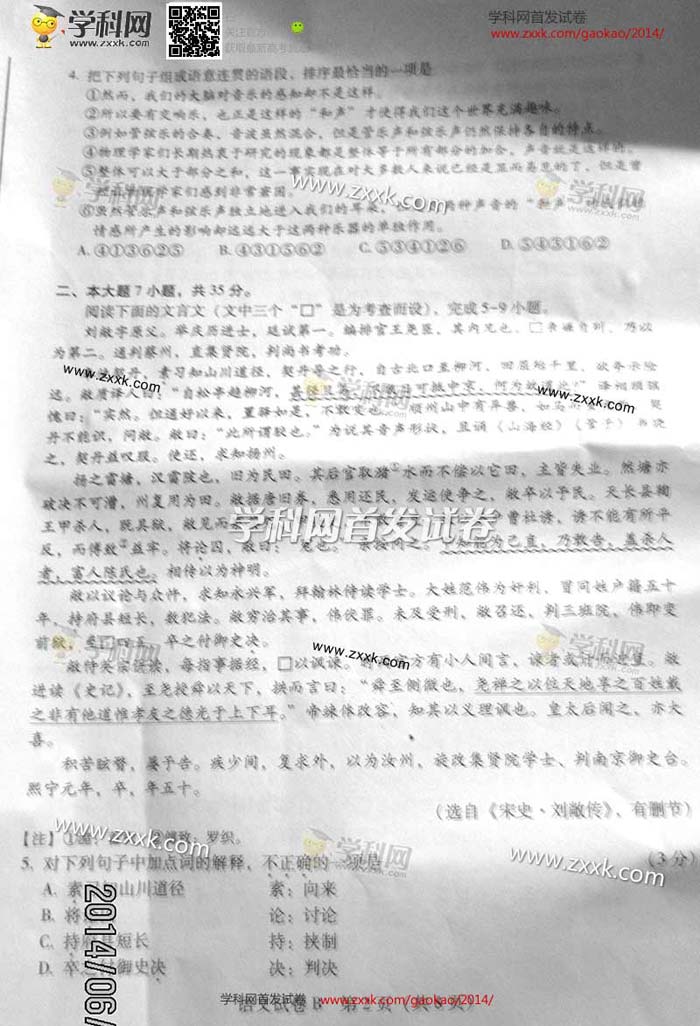 学科网
www.zxxk.com
学科网首发试卷
www.zxxk.com/gaokao/2014/
4. 把下列句子组成语意连贯的语段,排序最恰当的一项是
①然而,我们的大脑对音乐的感知却不是这样。
②所以要有交响乐,也正是这样的“和声”才使得我们这个世界充满趣味。
③例如管弦乐的合奏,音波虽然混合,但是管乐声和弦乐声仍然保持各自的特点。
④物理学家们长期热衷于研究的现象都是整体等于所有部分的加合,声音就是这样的。
⑤整体可以大于部分之和,这一事实现在对大多数人来说已经是显而易见的了,但是曾
物理学家们感到非常
⑥虽然管乐声和弦乐声独立地进入我们的耳朵,但 两种声音的“和声”
情感所产生的影响却远远大于这两种乐器的单独作用。
A.④①③⑥②⑤ B.④③①⑤⑥② C.⑤③④①②⑥ D.⑤④③①⑥②
www.zxxk.com
学科网
学科网
二、本大题7小题,共35分。
阅读下面的文言文(文中三个“□”是为考查而设),完成5-9小题。
刘敞字原父。举庆历进士,廷试第一。编排官王尧臣,其内兄也,□ 乃以
为第二。通判蔡州,直集贤院,判尚书考功。
契丹,素习知山川道径,契丹导之行,自古北口至柳河,回屈殆千里,欲夸示险
远。敞质译人曰:“自松亭趋柳河, 数日可抵中京,何为故道此?”译相顾骇
愧曰:“实然。但通好以来,置驿如是,不敢变也。”顺州山中有异兽,如马 契
丹不能识,问敞。敞曰:“此所谓駮也。”为说其音声形状,且诵《山海经》《管子》书晓
之,契丹益叹服。使还,求知扬州。
www.zxxk.com
学科网
www.zxxk.com
扬之雷塘,汉雷陂也,旧为民田。其后官取潴①水而不偿以它田,主皆失业。然塘亦
破决不可漕,州复用为田。敞据唐旧券,悉用还民,发运使争之,敞卒以予民。天长县鞫
王甲杀人,既具狱,敞见而 曹杜诱,诱不能有所平
反,而傅致②益牢。将论囚,敞曰:“冤也。”亲按问之。甲知能为己直,乃敢告,盖杀人
者,富人陈氏也。相传以为神明。
学科网首发试卷
敞以议论与众忤,求知永兴军,拜翰林侍读学士。大姓范伟为奸利,冒同姓户籍五十
年,持府县短长,数犯法。敞穷治其事,伟伏罪。未及受刑,敞召还,判三班院,伟即变
前狱,至 四五,卒之付御史决。
敞侍 读,每指事据经,□以讽谏。 方有小人间言,谏者或 敞
进读《史记》,至尧授舜以天下,拱而言曰:“舜至侧微也,尧禅之以位天地享之百姓戴
之非有他道惟孝友之德光于上下耳。”帝竦体改容,知其以义理讽也。皇太后闻之,亦大
喜。
www.zxxk.com
学科网
学科网
积苦眩瞀,屡予告。疾少间,复求外,以为汝州,旋改集贤院学士、判南京御史台。
熙宁元年,卒,年五十。
(选自《宋史·刘敞传》,有删节)
【注】① ②傅致:罗织。
www.zxxk.com
学科网
www.zxxk.com
5. 对下列句子中加点词的解释,不正确的一项是 (3分)
A. 素习知山川道径 素:向来
B. 将论 论:讨论
C. 持府县短长 持:挟制
D. 卒之付御史决 决:判决
2014/06/
学科网首发试卷
www.zxxk.com/gaokao/2014/
语文试卷B 第2页(共8页)